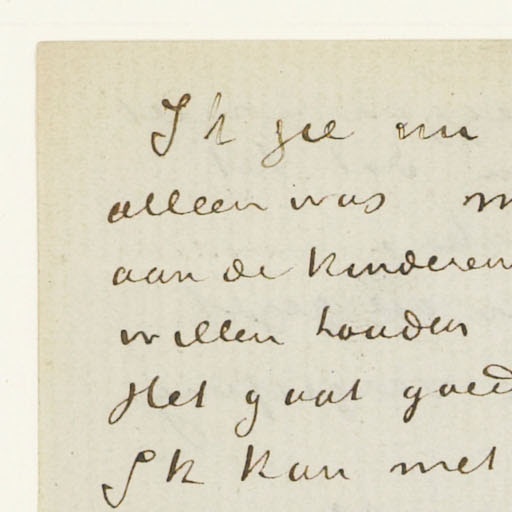 Ik zie nu
alleen was m
aan de kinderen
willen houden
Het gaat goed
Ik kan met